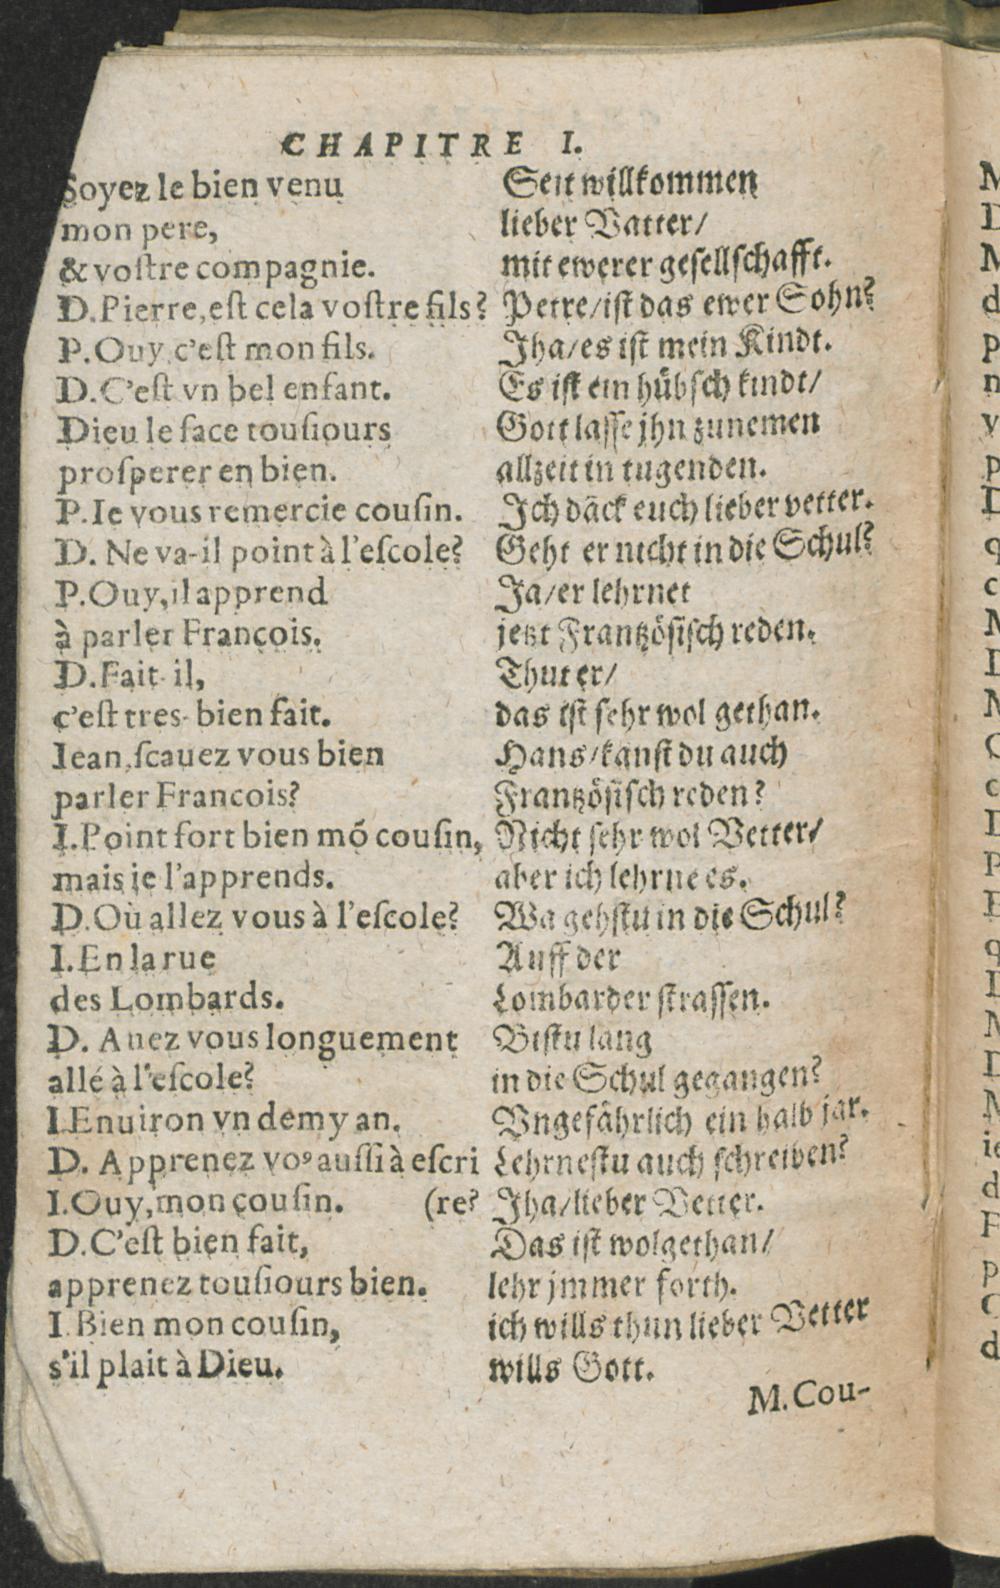 CHAPITRE I.
Soyez le bien venu
mon pere,
& voſtre compagnie.
D.Pierre,eſt cela voſtre fils?
P.Ouy,c'eſt mon fils.
D.C'eſt vn bel enfant.
Dieu le face touſiours
proſperer en bien.
P.Ie vous remercie couſin.
D. Ne va-il point à l'eſcole?
P.Ouy,il apprend
à parler François.
D.Fait-il,
c'eſt tres-bien fait.
Iean,ſcauez vous bien
parler Francois?
I.Point fort bien mõ couſin,
mais ie l'apprends.
D.Où allez vous à l'eſcole?
I.En la rue
des Lombards.
D. Auez vous longuement
allé à l'eſcole?
I.Enuiron vn demy an.
D. Apprenez voꝰ auſſi à eſcri
I.Ouy,mon couſin. (re?
D.C'eſt bien fait,
apprenez touſiours bien.
I.Bien mon couſin,
s'il plait à Dieu.
Seit willkommen
lieber Vatter/
mit ewerer geſellſchafft.
Petre/iſt das ewer Sohn?
Jha/es iſt mein Kindt.
Es iſt ein hübſch kindt/
Gott laſſe jhn zunemen
allzeit in tugenden.
Ich dãck euch lieber vetter.
Geht er nicht in die Schul?
Ja/er lehrnet
jetzt Frantzöſiſch reden.
Thut er/
das iſt ſehr wol gethan.
Hans/kanſt du auch
Frantzöſiſch reden?
Nicht ſehr wol Vetter/
aber ich lehrne es.
Wa gehſtu in die Schul?
Auff der
Lombarder ſtraſſen.
Biſtu lang
in die Schul gegangen?
Vngefährlich ein halb jar.
Lehrneſtu auch ſchreiben?
Jha/lieber Vetter.
Das iſt wolgethan/
lehr jmmer forth.
ich wills thun lieber Vetter
wills Gott.
M.Cou-